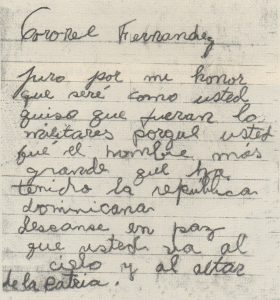 Coronel Fernandez
juro por mi honor
que seré como usted
quiso que fueran lo
militares porque usted
fué el hombre más
grande que ha
tenidro la republica
dominicana
descanse en paz
que usted va al
cielo y al altar
de la patria.